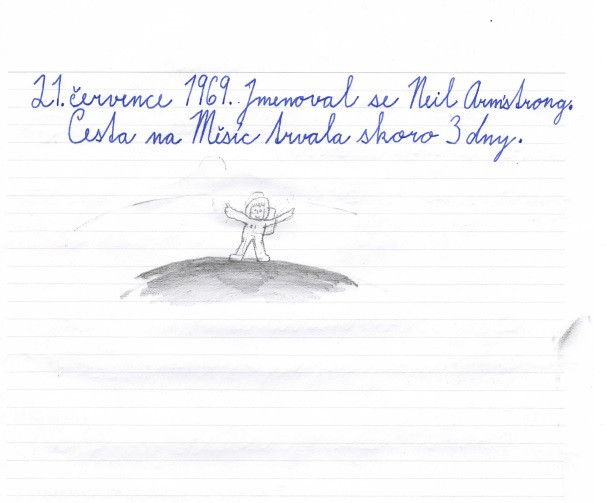 21. července 1969. Jmenoval se Neil Armstrong.
Cesta na Měsíc trvala skoro 3 dny.